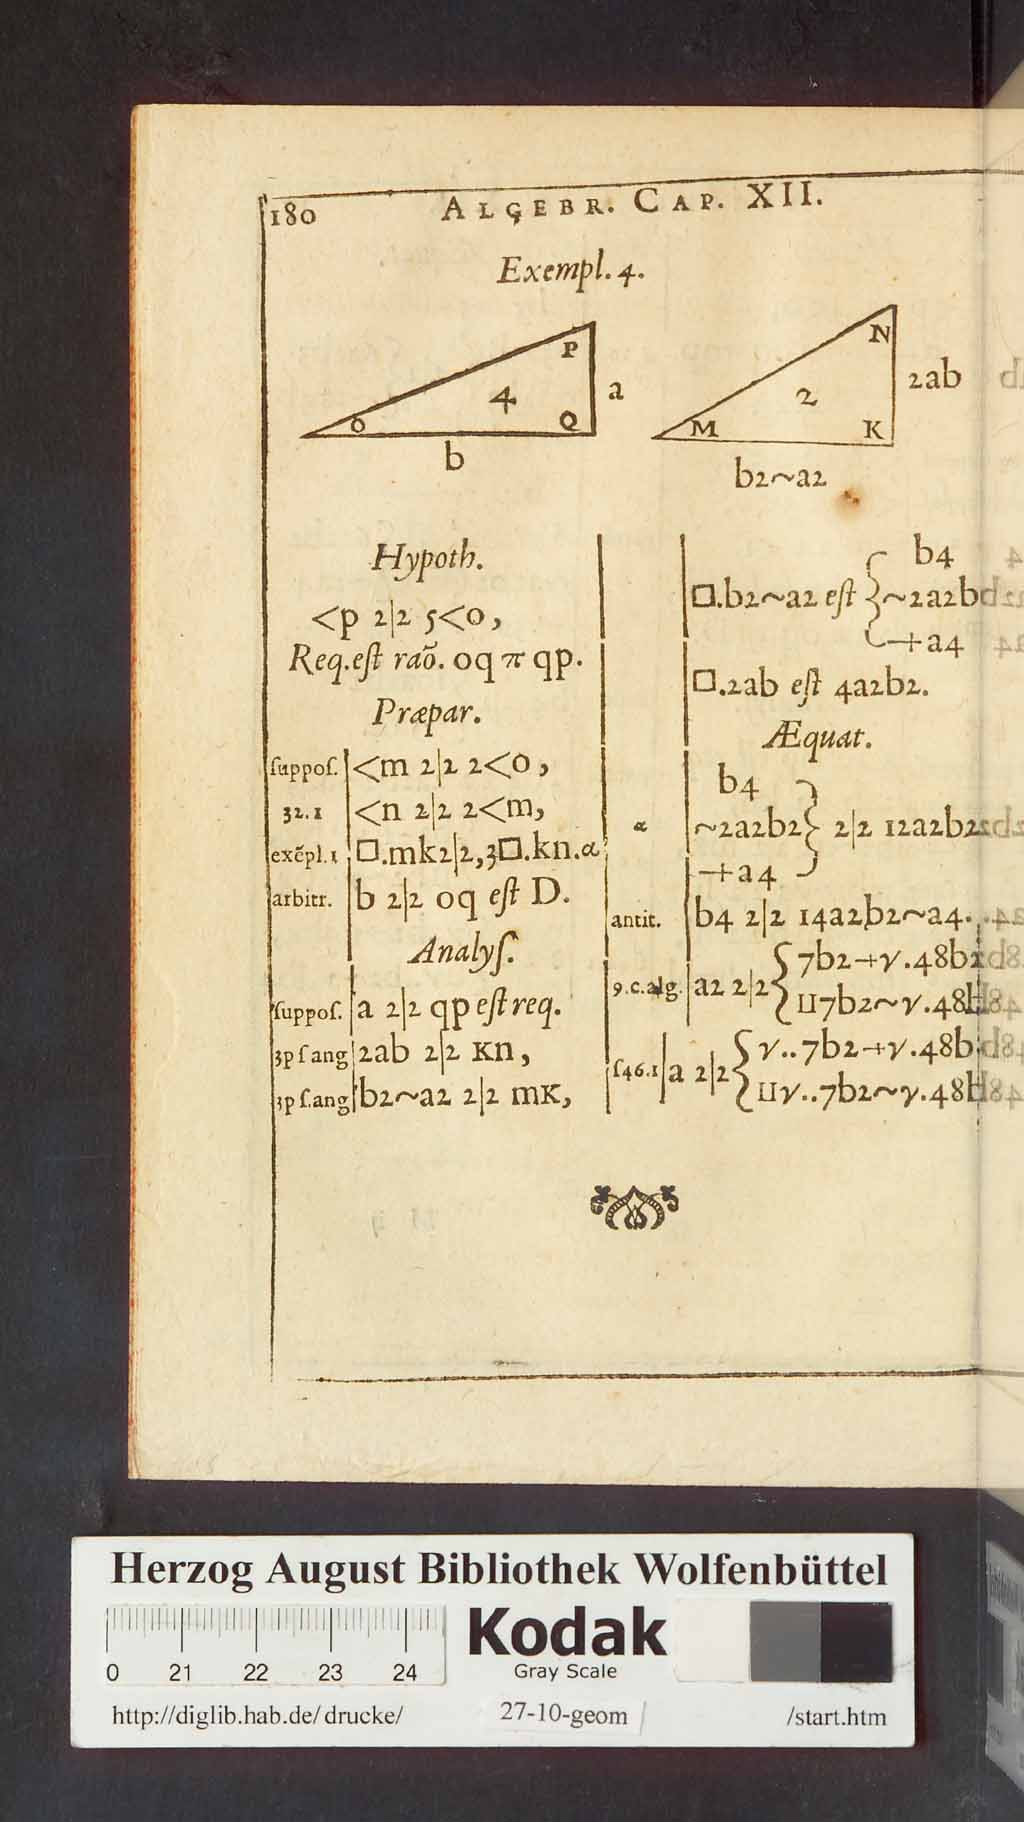 180
ALGEBR. CAP. XII.
Exempl. 4.
P
O
4
Q
a
b
N
M
2
K
2ab
b2~a2
Hypoth.
<p 2|2 5<o,
Req. est raõ. oq π qp.
Præpar.
ſuppoſ. <m 2|2 2<o,
32.1 <n 2|2 2<m,
exẽpl.1 □.mk2|2,3□.kn.α
arbitr. b 2|2 oq eſt D.
Analyſ.
ſuppoſ. a 2|2 qp eſt req.
3pſ ang 2ab 2|2 Kn,
3pſ.ang b2~a2 2|2 mK,
b4
□.b2~a2 eſt ~2a2b
-+a4
□.2ab eſt 4a2b2.
Æquat.
b4
α ~2a2b2 2|2 12a2b2
-+a4
antit. b4 2|2 14a2b2~a4.
9.c.alg. a2 2|2 7b2-+γ.48b
II7b2~γ.48b
ſ46.1 a 2|2 γ..7b2-+γ.48b
IIγ..7b2~γ.48b
Herzog August Bibliothek Wolfenbüttel
0 21 22 23 24
Kodak
Gray Scale
http://diglib.hab.de/drucke/ 27-10-geom /start.htm